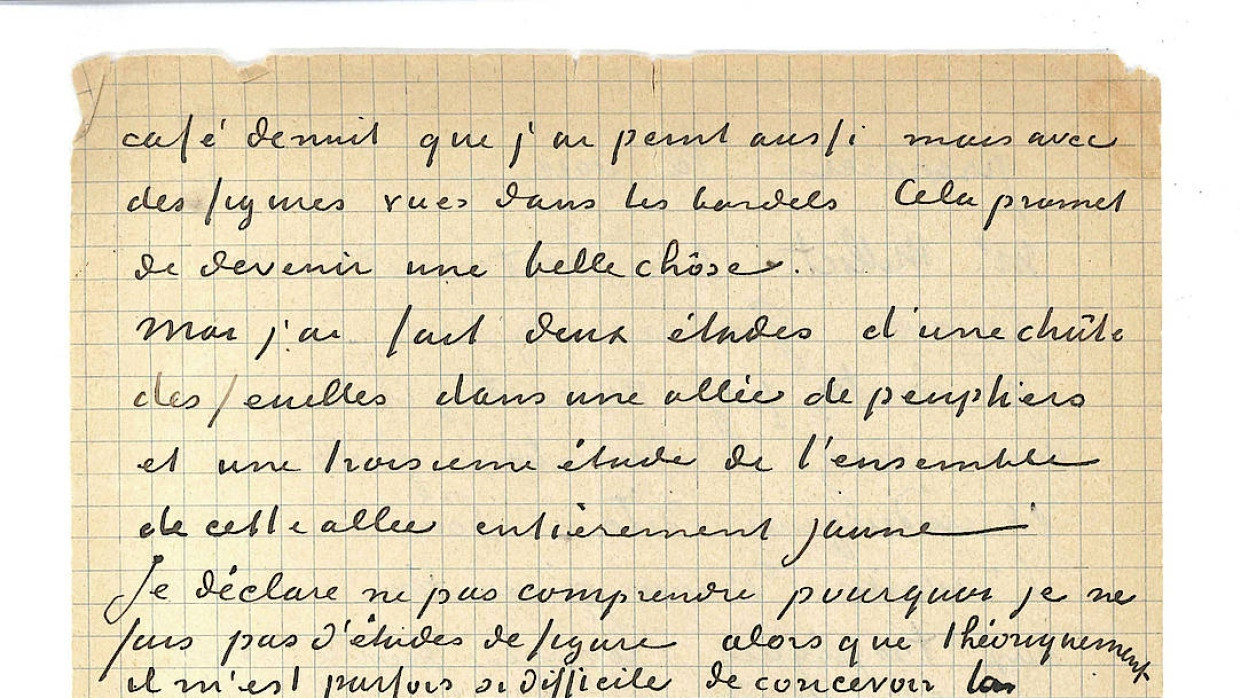 café de nuit que j'ai peint aussi mais avec
des figures vues dans les bordels Cela promet
de devenir une belle chôse.
Moi j'ai fait deux études d'une chûte
des feuilles dans une allée de peupliers
et une troisieme étude de l'ensemble
de cette allee entièrement jaune
Je déclare ne pas comprendre pourquoi je ne
fais pas d'études de figure alors que théoriquement
il m'est parfois si difficile de concevoir la